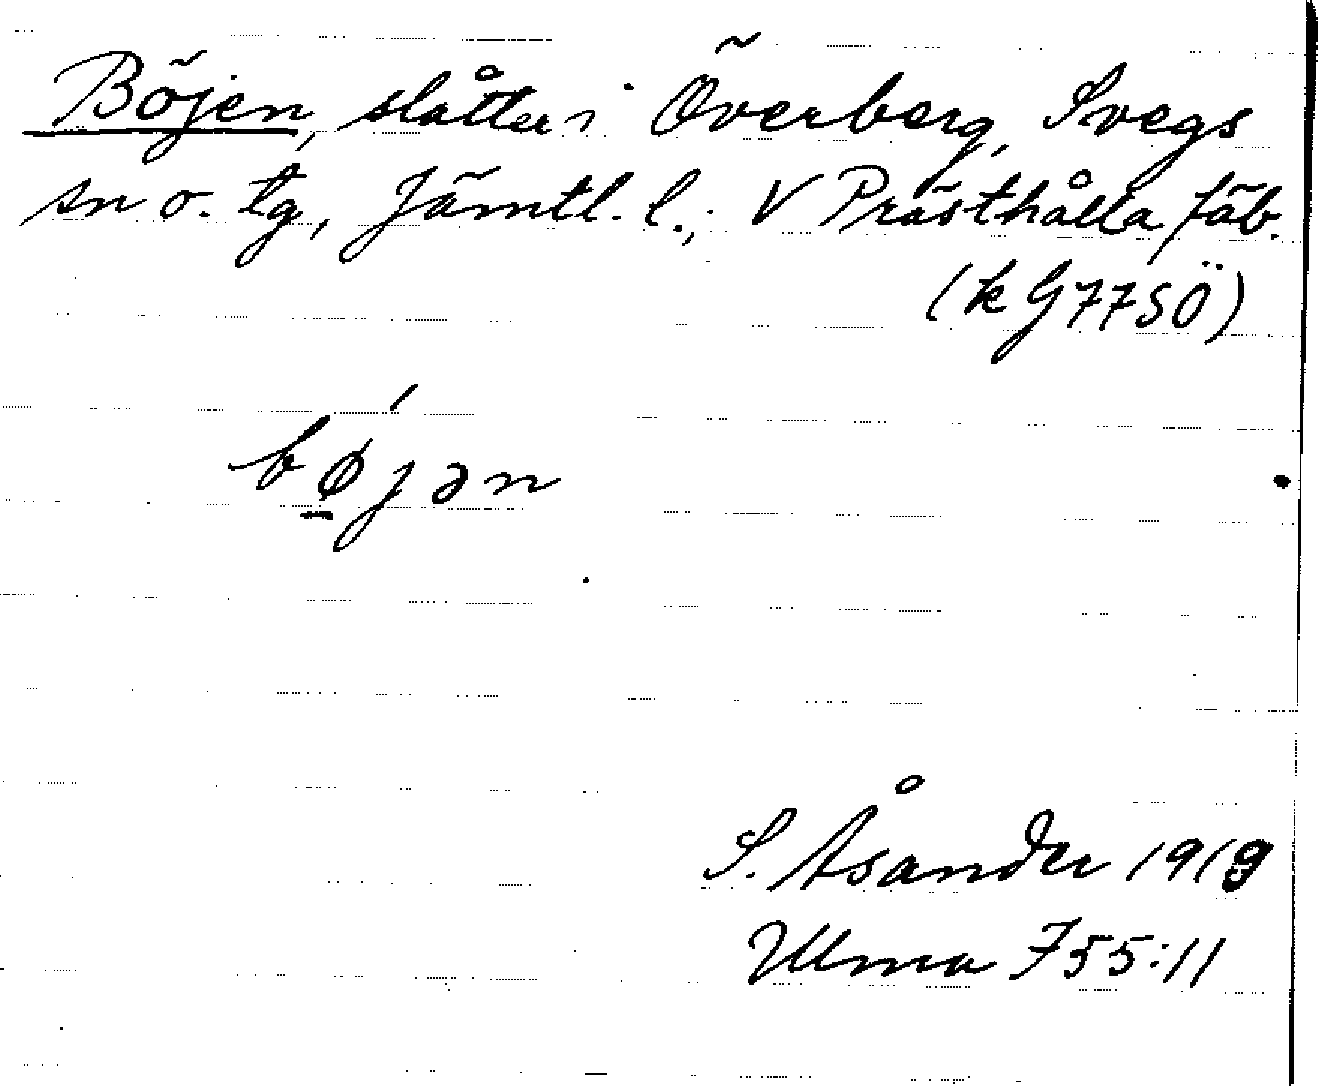 Böjen, slåtter i Överberg, Svegs
sn o. tg, Jämtl. l., V Prästhålla fäb.
(k G77SÖ)
bøjən
S. Åsander 1919
Ulma 755:11